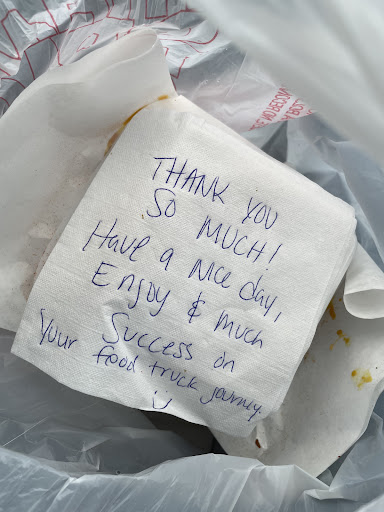 THANK YOU
SO MUCH!
Have a nice day,
Enjoy & much
Success on
your food truck journey.